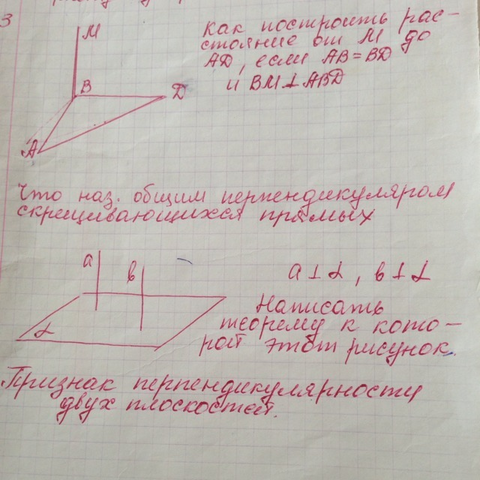 3
M
B
D
A
как построить рас-
стояние от M до
AD, если AB=BD
и BM⊥ABD
Что наз. общим перпендикуляром
скрещивающихся прямых
a
b
α
a⊥α, b⊥α
Написать
теорему к кото-
рой этот рисунок.
Признак перпендикулярности
двух плоскостей.